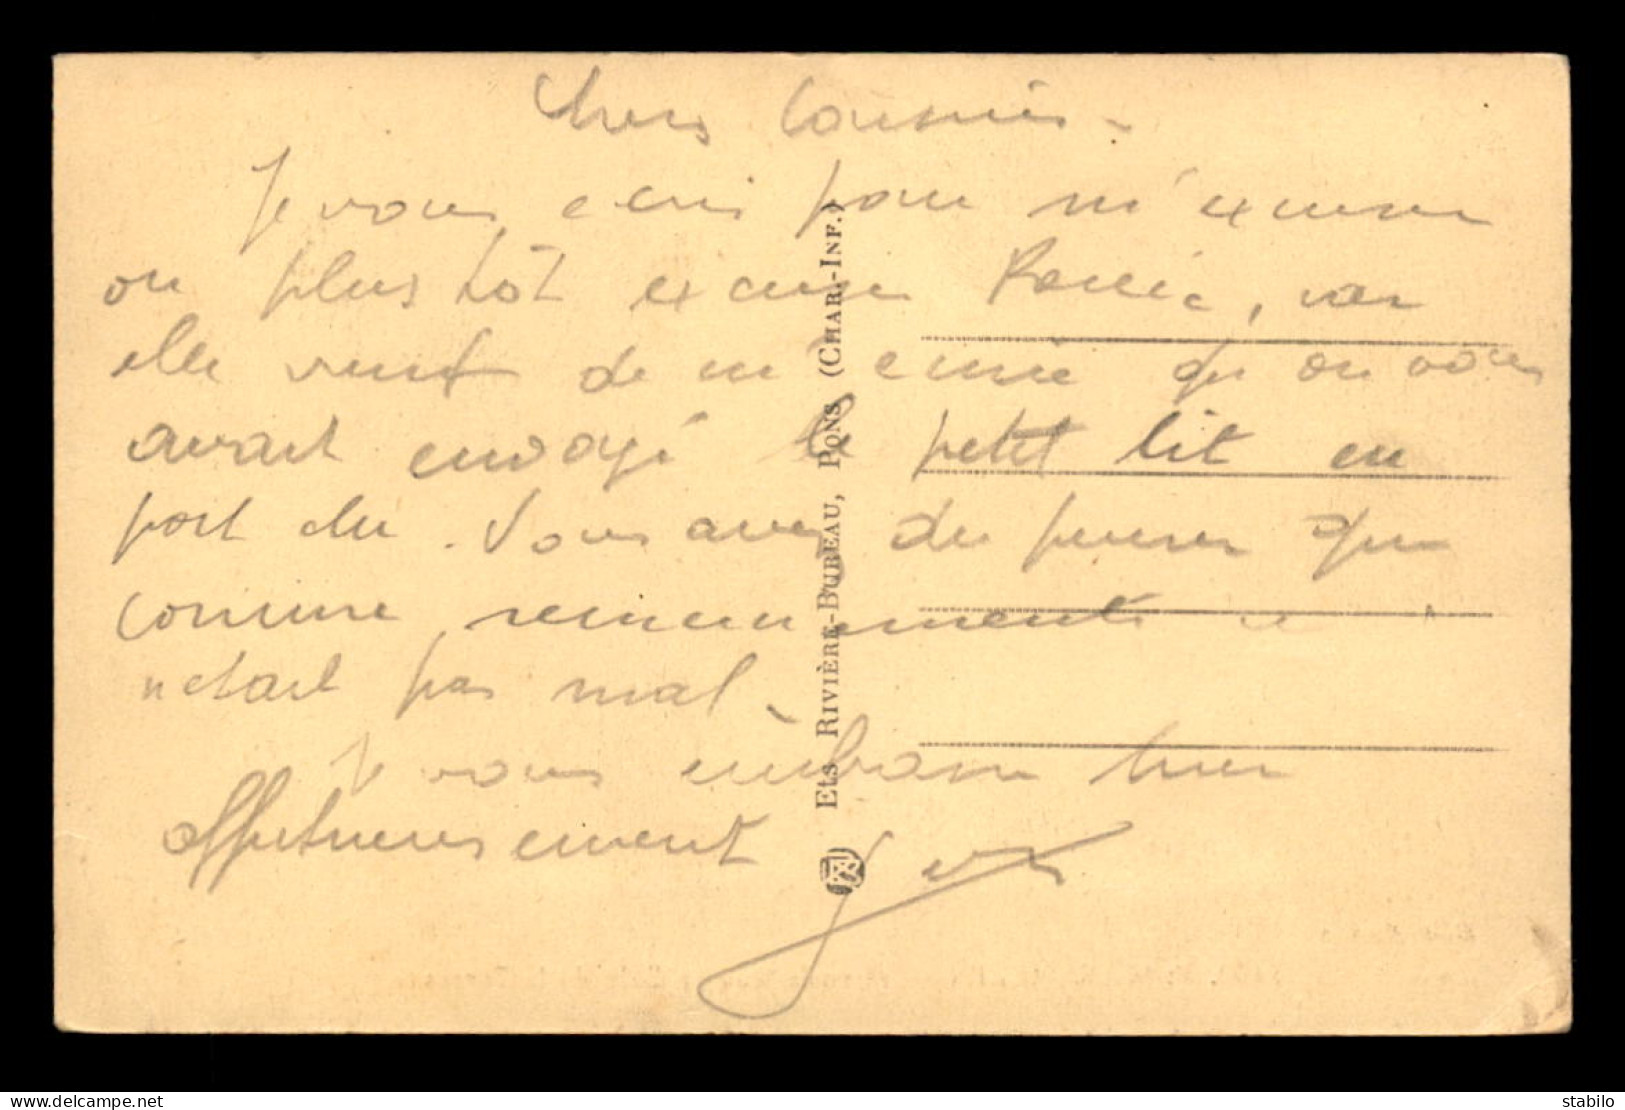 Chers Cousins -
Je vous ecris pour m'excuser
ou plustôt excuser car
elle vient de m'ecrire qu'on vous
avait envoyé le petit lit en
port du. Vous avez du penser que
comme remerciements ce
n'etait pas mal -
Je vous embrasse bien
affectueusement
Ets RIVIÈRE-BUREAU, PONS (CHAR.-INF.)
delcampe.net
stabilo